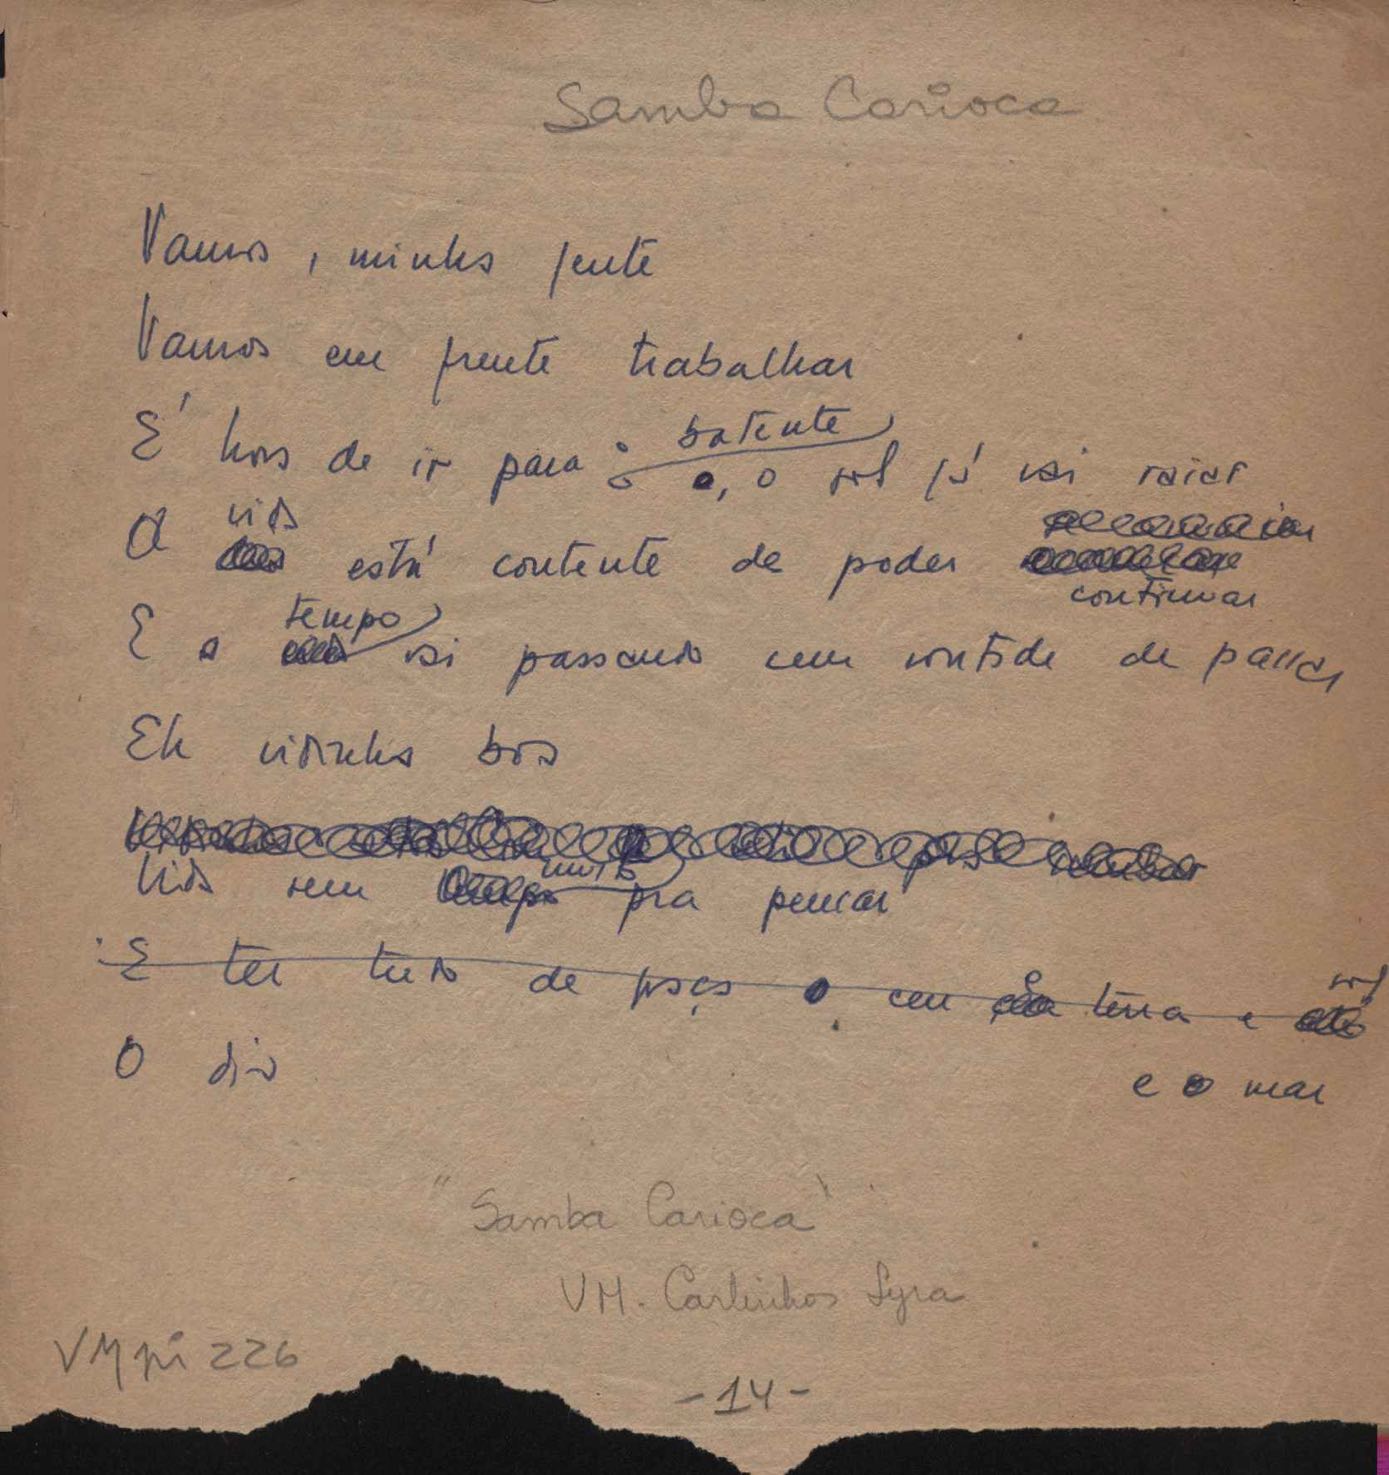 Samba Carioca
Vamos, minha gente
Vamos em frente trabalhar
É hora de ir para o batente, o sol já vai raiar
A vida está contente de poder continuar
E o tempo vai passando sem vontade de passar
Eh vidinha boa
Vida sem muito pra pensar
E ter tudo de graça o céu e terra e sol
e o mar
O dia
"Samba Carioca"
VM. Carlinhos Lyra
VMpi 226
-14-